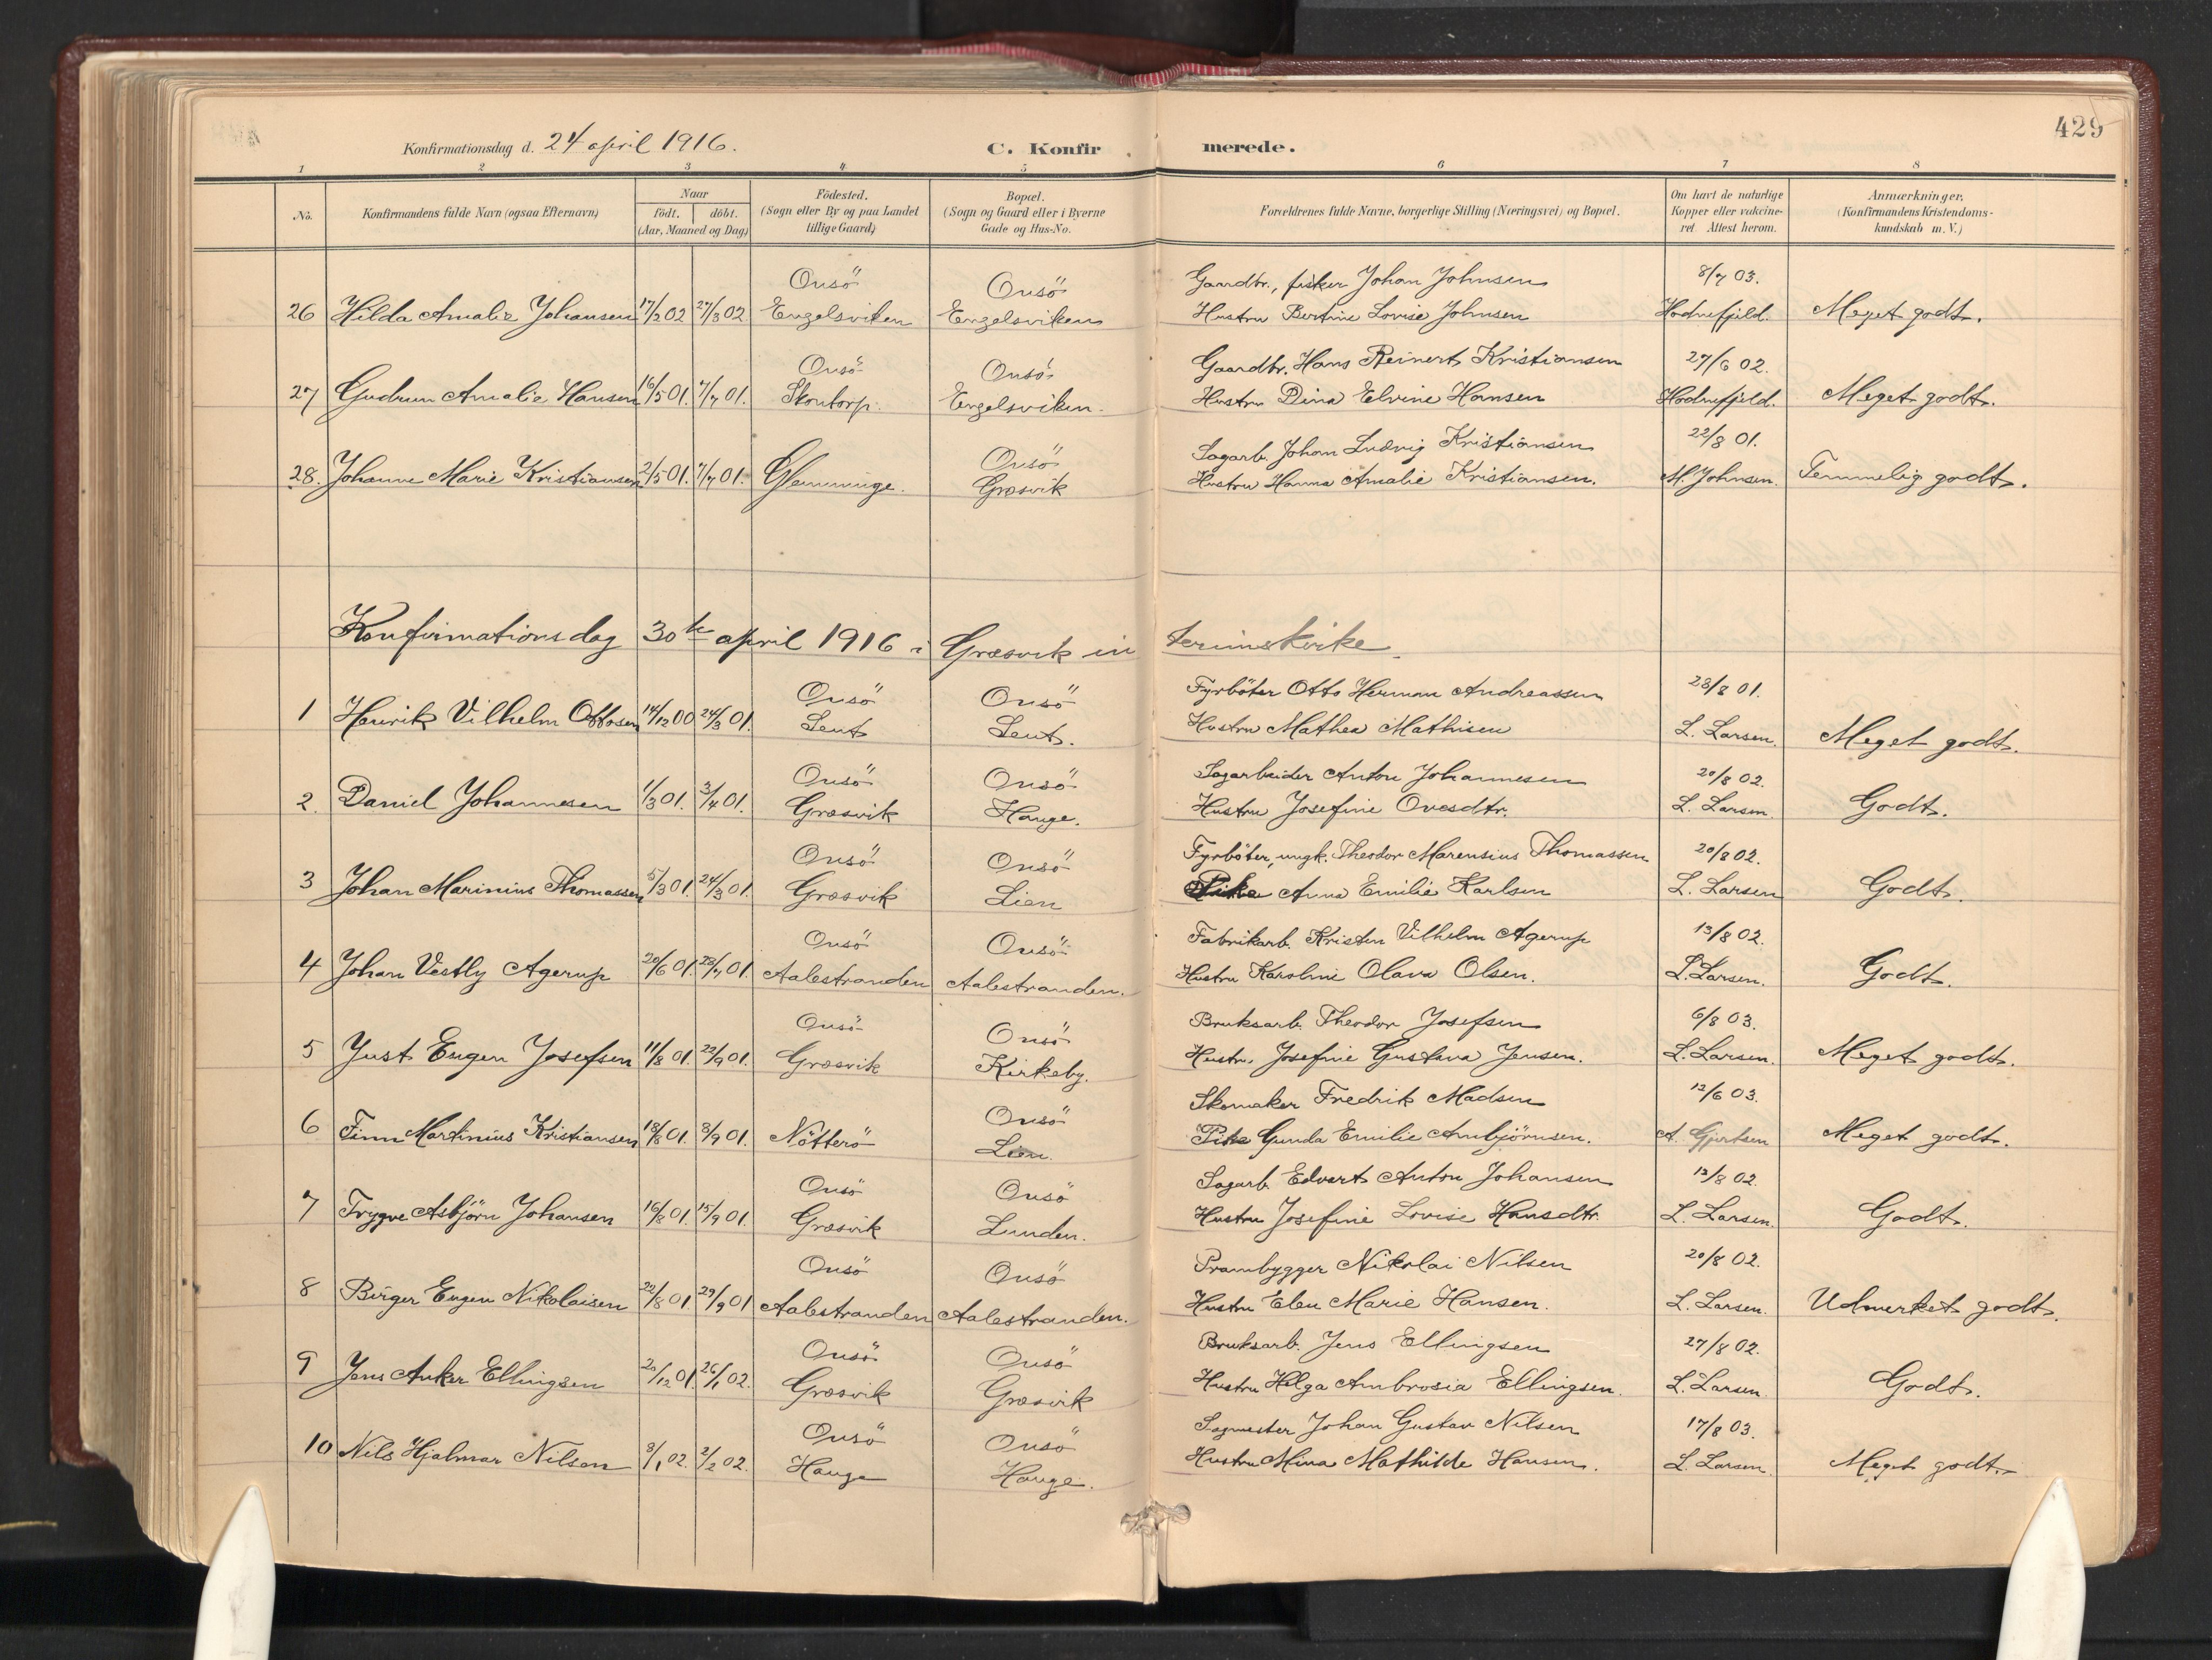 429
Konfirmationsdag d. 24 april 1916.
C. Konfirmerede.
1 2 3 4 5 6 7 8
No. Konfirmandens fulde Navn (ogsaa Efternavn) Naar født. døbt. (Aar, Maaned og Dag) Födested. (Sogn eller By og paa Landet tillige Gaard) Bopæl. (Sogn og Gaard eller i Byerne Gade og Hus-No. Forældrenes fulde Navne, borgerlige Stilling (Næringsvei) og Bopæl. Om havt de naturlige Kopper eller vakcineret Attest herom. Anmærkninger. (Konfirmandens Kristendomskundskab m. V.)
Onsö Onsö Gaardbr., fisker Johan Johnsen 8/7 03.
26 Hilda Amalie Johansen 17/2 02 27/3 02 Engelsviken Engelsviken Hustru Bertine Lovise Johnsen Hodnefjeld. Meget godt.
Onsö Onsö Gaardbr. Hans Reinert Kristiansen 27/6 02.
27 Gudrun Amalie Hansen 16/5 01. 7/7 01. Skontorp. Engelsviken. Hustru Dina Elvine Hansen Hodnefjeld. Meget godt.
Onsö Sagarb. Johan Ludvig Kristiansen 22/8 01.
28. Johanne Marie Kristiansen 2/5 01. 7/7 01. Glemminge. Græsvik Hustru Hanna Amalie Kristiansen. M. Johnsen. Temmelig godt.
Konfirmationsdag 30te april 1916 i Græsvik interimskirke.
Onsö Onsö Fyrböter Otto Herman Andreassen 28/8 01.
1 Henrik Vilhelm Ottosen 14/12 00 24/3 01. Lent Lent. Hustru Mathea Mathisen L. Larsen. Meget godt.
Onsö Onsö Sagarbeider Anton Johannesen 20/8 02.
2. Daniel Johannesen 1/3 01. 3/4 01. Græsvik Hauge. Hustru Josefine Ovesdtr. L. Larsen. Godt.
Onsö Onsö Fyrböter, ungk. Theodor Marensius Thomassen 20/8 02.
3 Johan Marinius Thomassen 5/3 01. 24/3 01. Græsvik Lien Pike Anna Emilie Karlsen L. Larsen Godt.
Onsö Onsö Fabrikarb. Kristen Vilhelm Agerup 13/8 02.
4 Johan Vestly Agerup 20/6 01. 28/7 01. Aalestranden Aalestranden. Hustru Karoline Olava Olsen. L. Larsen. Godt.
Onsö Onsö Bruksarb. Theodor Josefsen 6/8 03.
5 Just Eugen Josefsen 11/8 01. 22/9 01. Græsvik Kirkeby. Hustru. Josefine Gustava Jensen. L. Larsen. Meget godt.
Onsö Skomaker Fredrik Madsen 12/6 03.
6 Finn Martinius Kristiansen 18/8 01. 8/9 01. Nötterö Lien. Pike Gunda Emilie Arnbjörnsen. A. Gjertsen Meget godt.
Onsö Onsö Sagarb. Edvart Anton Johansen 13/8 02.
7 Trygve Asbjörn Johansen 16/8 01. 15/9 01. Græsvik Lunden. Hustru Josefine Lovise Hansdtr. L. Larsen. Godt.
Onsö Onsö Prambygger Nikolai Nilsen 20/8 02.
8 Birger Eugen Nikolaisen 22/8 01. 29/9 01 Aalestranden Aalestranden. Hustru Elen Marie Hansen. L. Larsen. Udmerket godt.
Onsö Onsö Bruksarb. Jens Ellingsen 27/8 02.
9 Jens Anker Ellingsen 20/12 01. 26/1 02. Græsvik Græsvik Hustru Helga Ambrosia Ellingsen. L. Larsen. Godt.
Onsö Onsö Sagmester Johan Gustav Nilsen 17/8 03.
10 Nils Hjalmar Nilsen 8/1 02. 2/2 02. Hauge Hauge. Hustru Mina Mathilde Hansen. L. Larsen. Meget godt.